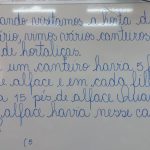 ando visitamos a horta d
ário, vimos vários canteiros
de hortaliças.
um canteiro havia 5 f
e alface e em cada fil
a 15 pés de alface. Qua
alface havia nesse ca
(5